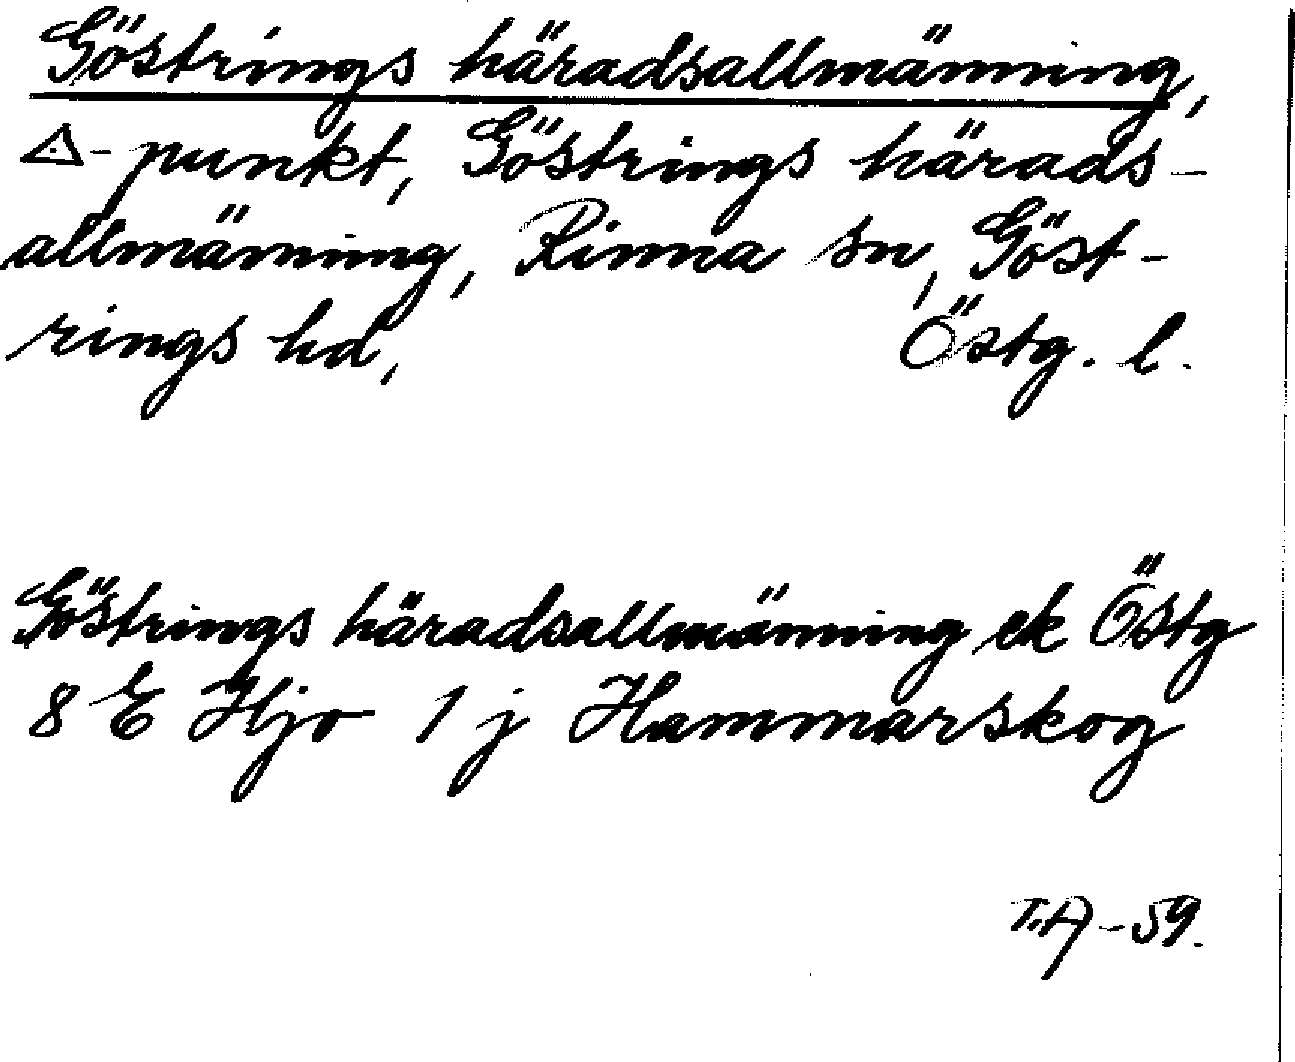 Göstrings häradsallmänning,
△-punkt, Göstrings härads-
allmänning, Rinna sn, Göst-
rings hd, Östg. l.
Göstrings häradsallmänning ek Östg
8 E Hjo 1 j Hammarskog
T.A-59.